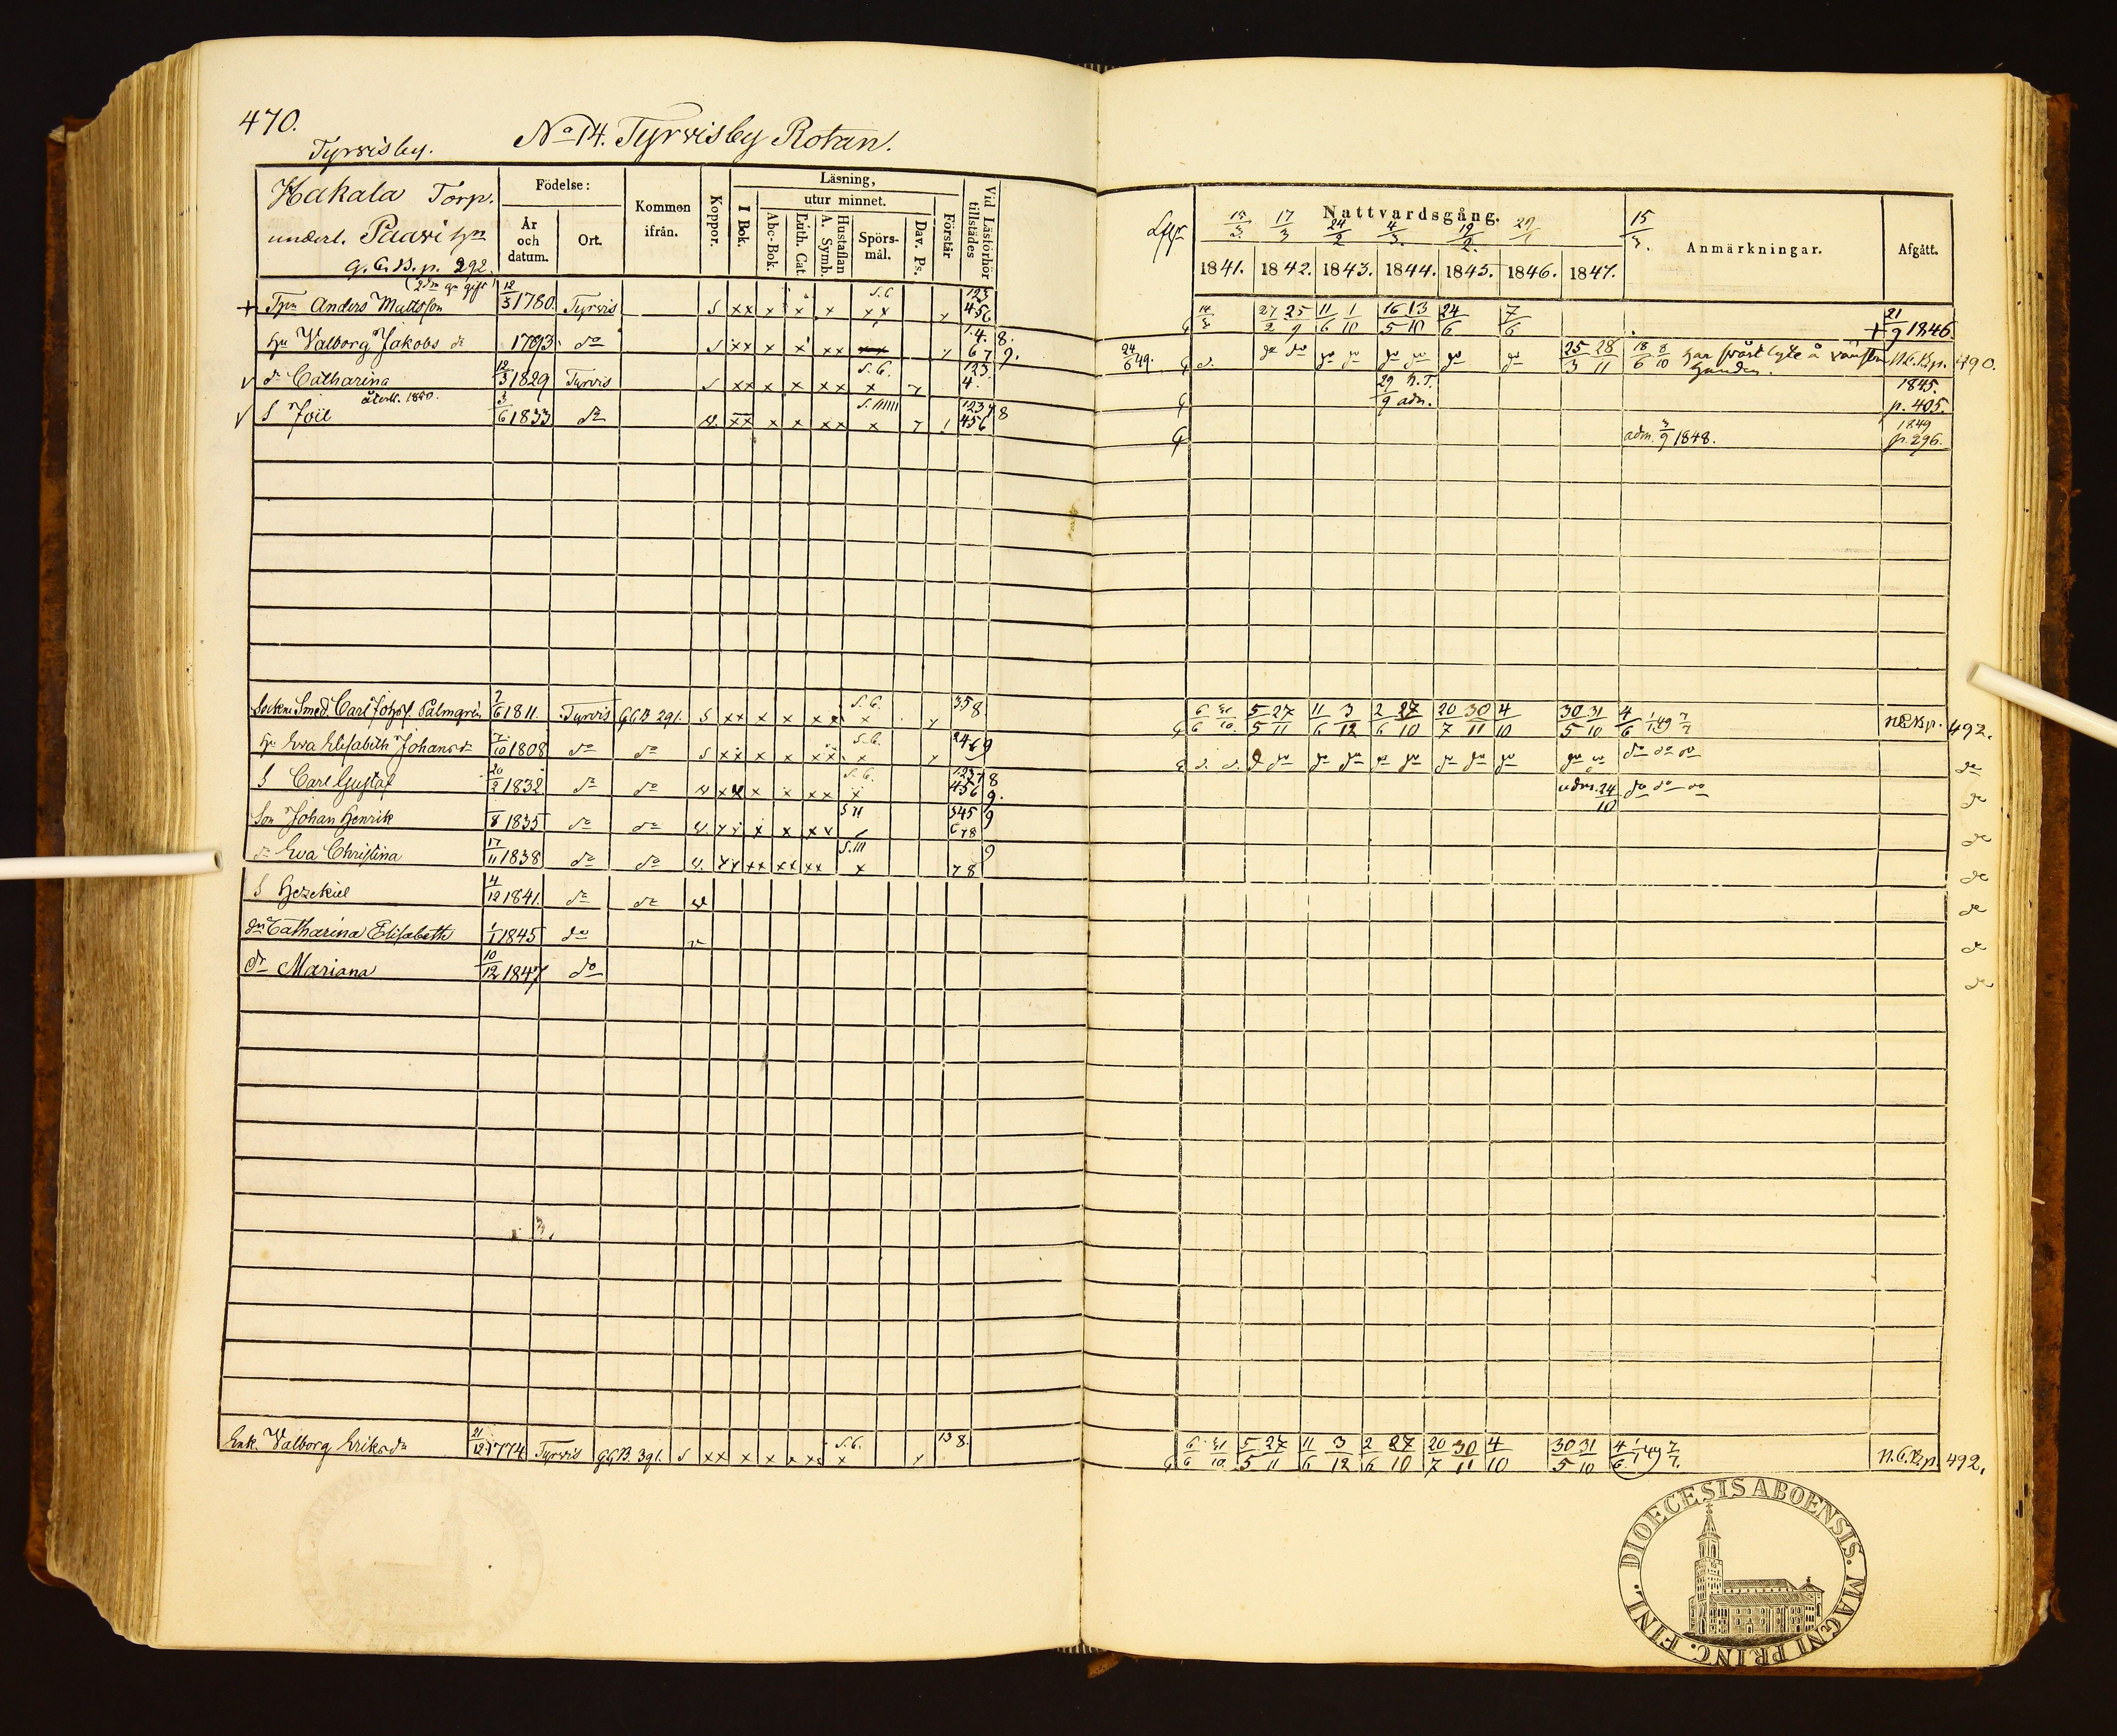 470.
Tyrvisby. No 14. Tyrvisby Rotan.
Hakala Torp.
underl. Paavi hn
G.C.B. p. 292.
Födelse:
År och datum.
Ort.
Kommen ifrån.
Koppor.
Läsning,
I Bok.
utur minnet.
Abc-Bok.
Luth. Cat.
A. Symb.
Hustaflan
Spörsmål.
Dav. Ps.
Förstår
Vid Läsförhör tillstädes
Nattvardsgång.
15/3 17/3 24/2 4/3. 19/2.
15/3.
1841. 1842. 1843. 1844. 1845. 1846. 1847.
Anmärkningar.
Afgått.
(2dra g. gift)
+ Anders Mattsson 12/3 1780. Tyrvis s xx x x x S.G. xx 123 456 27/2 25/9 11/6 1/10 16/5 13/10 24/6 7/6 + 21/9 1846.
hu Valborg Jakobs dr 1793. do s xx x x xx 1.4. 8. 6 7 9. 24/6 49. 25/3 28/11 18/6 8/10 har svårt lyte å vänstra handen. N.C.B. p. 490.
v dr Catharina 12/3 1829 Tyrvis s xx x x xx S.G. x 123. 4. 29/9 adm. 1845. p. 405.
återk. 1850.
v S Joel 3/6 1833 do v. xx x x xx x 1237 8 456 adm. 3/9 1848. 1849 p. 296.
Sockne Smed. Carl Johsf. Palmgrén 2/6 1811. Tyrvis GCB 291. s xx x x xx S.G. x 358 5/5 27/11 11/6 3/12 2/6 27/10 20/7 30/11 4/10 30/5 31/10 4/6 1/1 49 7/7 NCB p. 492.
hu Eva Elisabeth Johansdr 7/10 1808 do do s xx x x xx S.G. x 246 9 do do do do
S Carl Gustaf 20/2 1832 do do v xx x x xx S.G. x 1237 8 456 9. adm. 24/10 do do do do
Son Johan Henrik 1835 do do v. x x xx 345 9 678 do
dr Eva Christina 17/11 1838 do do v. xx xx xx xx S.III x 78 9 do
S Hezekiel 4/12 1841. do do v do
dr Catharina Elisabeth 1/1 1845 do v do
dr Mariana 10/12 1847 do do
Enk. Valborg Eriksdr 21/12 1774 Tyrvis GCB. 391. s xx x x xx S.G. x 138. 5/5 27/11 11/6 3/12 2/6 27/10 20/7 30/11 4/10 30/5 31/10 4/6 1/1 49 7/7. N.C.B. p. 492.
DIOECESIS ABOENSIS. MAGNI PRINC. FINL.